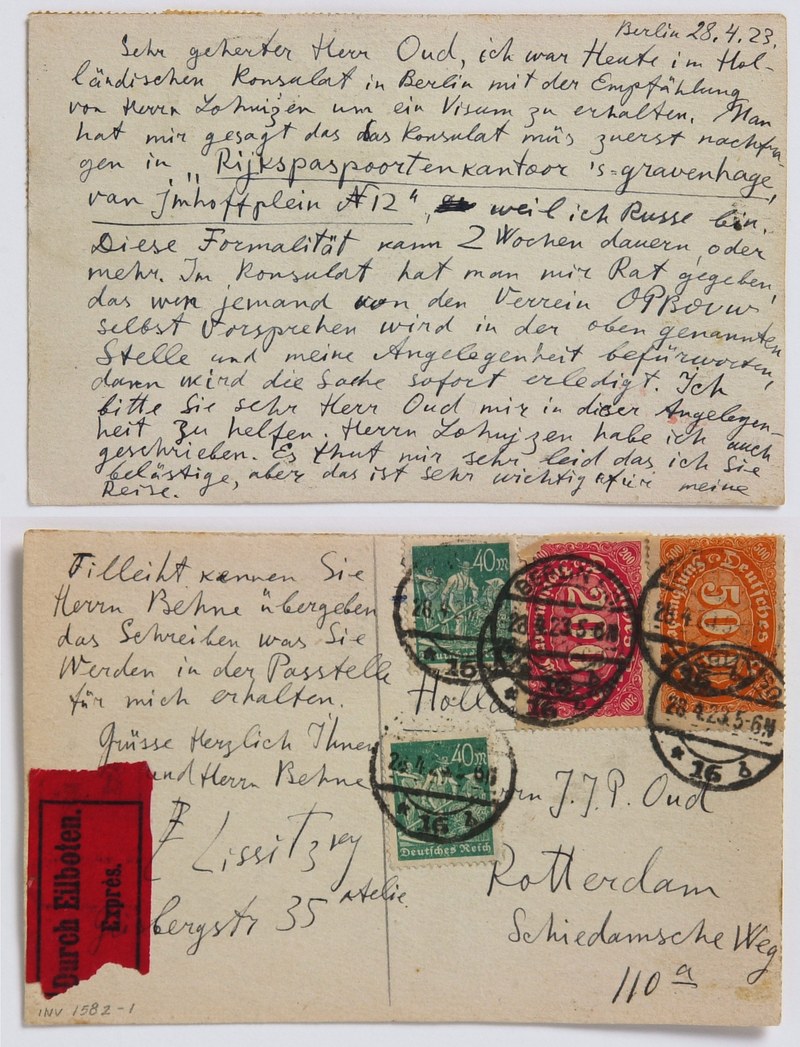 Berlin 28.4.23.
Sehr geherter Herr Oud, ich war Heute im Hol-
ländischen Konsulat in Berlin mit der Empfählung
von Herrn Lohuizen um ein Visum zu erhalten. Man
hat mir gesagt das das Konsulat müs zuerst nachfra-
gen in „Rijkspaspoortenkantoor 's=gravenhage,
van Jmhoffplein N12", weil ich Russe bin.
Diese Formalität kann 2 Wochen dauern, oder
mehr. Im Konsulat hat man mir Rat gegeben,
das wen jemand von den Verein OPBOUW
selbst Vorsprehen wird in der oben genannten
Stelle und meine Angelegenheit befürworten,
dann wird die Sache sofort erledigt. Ich
bitte Sie sehr Herr Oud mir in dieser Angelegen-
heit zu helfen. Herrn Lohujzen habe ich auch
geschrieben. Es thut mir sehr leid das ich Sie
belästige, aber das ist sehr wichtig für meine
Reise.
Filleiht kennen Sie
Herrn Behne übergeben
das Schreiben was Sie
Werden in der Passtelle
für mich erhalten.
Grüsse Herzlich Ihnen
und Herrn Behne
Lissitzky
Atelie
bergstr 35
Durch Eilboten.
Exprés.
INV 1582-1
40M
200
500
Deutsches
BERLIN
28.4.23.5-6N
* 16 b
28.4.23.5-6N
* 16 b
Holla
40M
Deutsches Reich
J.J.P. Oud
Rotterdam
Schiedamsche Weg
110 a